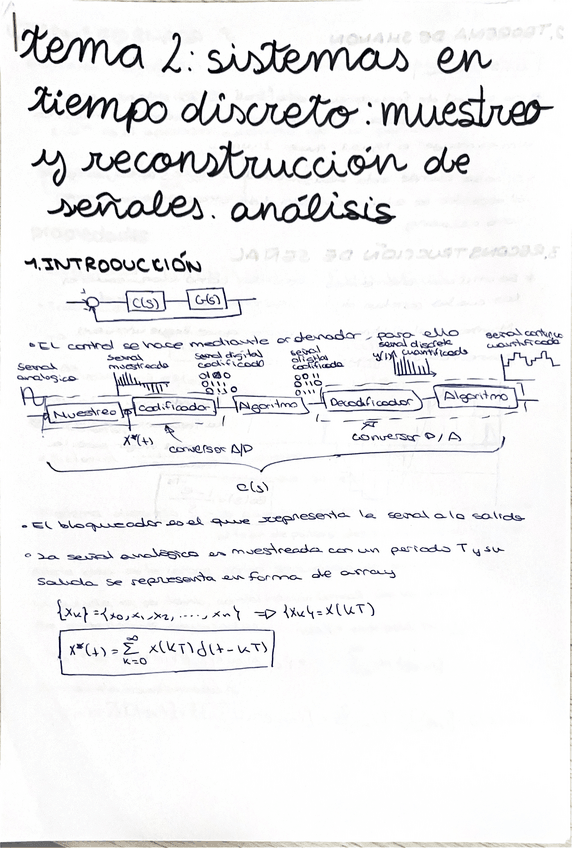 tema 2: sistemas en
tiempo discreto: muestreo
y reconstrucción de
señales. análisis
1. INTRODUCCIÓN
C(s) G(s)
• EL control se hace mediante ordenador, para ello
señal analógica
señal muestreada
señal digital codificada
señal digital codificada
señal discreta cuantificada
señal continua cuantificada
Muestreo Codificador Algoritmo Decodificador Algoritmo
X*(t)
conversor A/D
conversor D/A
C(s)
• El bloqueador es el que representa la señal a la salida
• La señal analógica es muestreada con un periodo T y su
salida se representa en forma de array
{xk} = {x0, x1, x2, ....., xn} => {xk} = X(kT)
X*(t) = ∑ k=0 ∞ X(kT) d(t - kT)